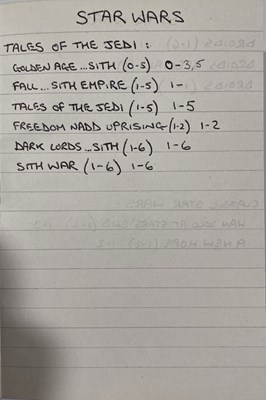 STAR WARS
TALES OF THE JEDI :
GOLDEN AGE...SITH (0-5) 0-3,5
FALL...SITH EMPIRE (1-5) 1-
TALES OF THE JEDI (1-5) 1-5
FREEDOM NADD UPRISING (1-2) 1-2
DARK LORDS...SITH (1-6) 1-6
SITH WAR (1-6) 1-6